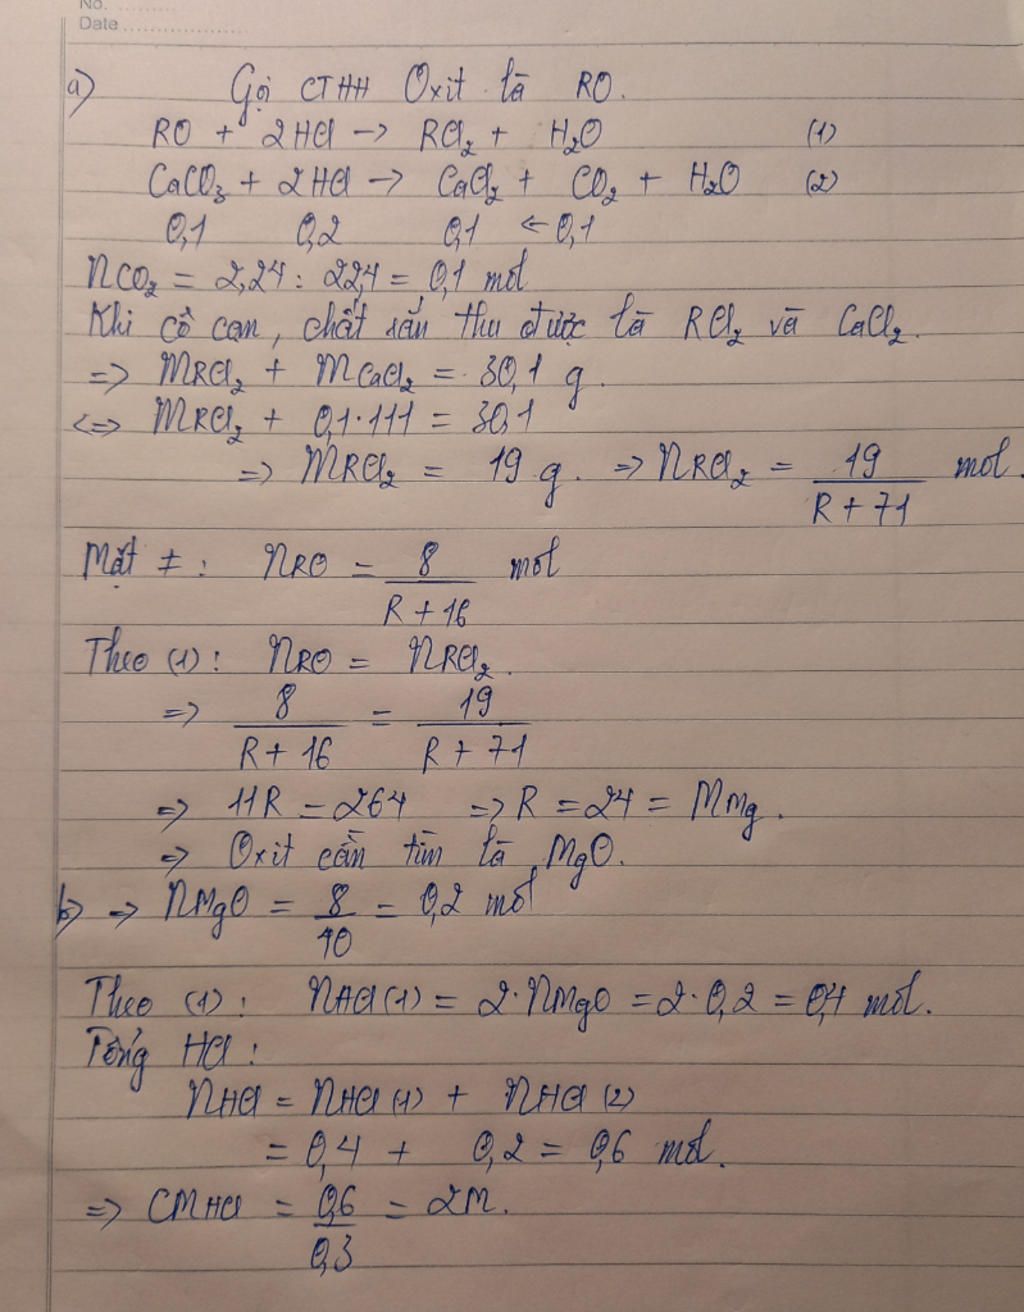 No. ..........
Date ....................
a) Gọi CTHH Oxit là RO.
RO + 2HCl -> RCl₂ + H₂O (1)
CaCO₃ + 2HCl -> CaCl₂ + CO₂ + H₂O (2)
0,1 0,2 0,1 <- 0,1
nCO₂ = 2,24 : 22,4 = 0,1 mol
Khi cô cạn, chất rắn thu được là RCl₂ và CaCl₂.
=> MRCl₂ + MCaCl₂ = 30,1 g.
<=> MRCl₂ + 0,1·111 = 30,1
=> MRCl₂ = 19 g. => nRCl₂ = 19/(R + 71) mol.
Mặt ≠ : nRO = 8/(R + 16) mol
Theo (1): nRO = nRCl₂.
=> 8/(R + 16) = 19/(R + 71)
=> 11R = 264 => R = 24 = MMg.
=> Oxit cần tìm là MgO.
b) => nMgO = 8/40 = 0,2 mol
Theo (1): nHCl(1) = 2·nMgO = 2·0,2 = 0,4 mol.
Tổng HCl :
nHCl = nHCl (1) + nHCl (2)
= 0,4 + 0,2 = 0,6 mol.
=> CMHCl = 0,6/0,3 = 2M.